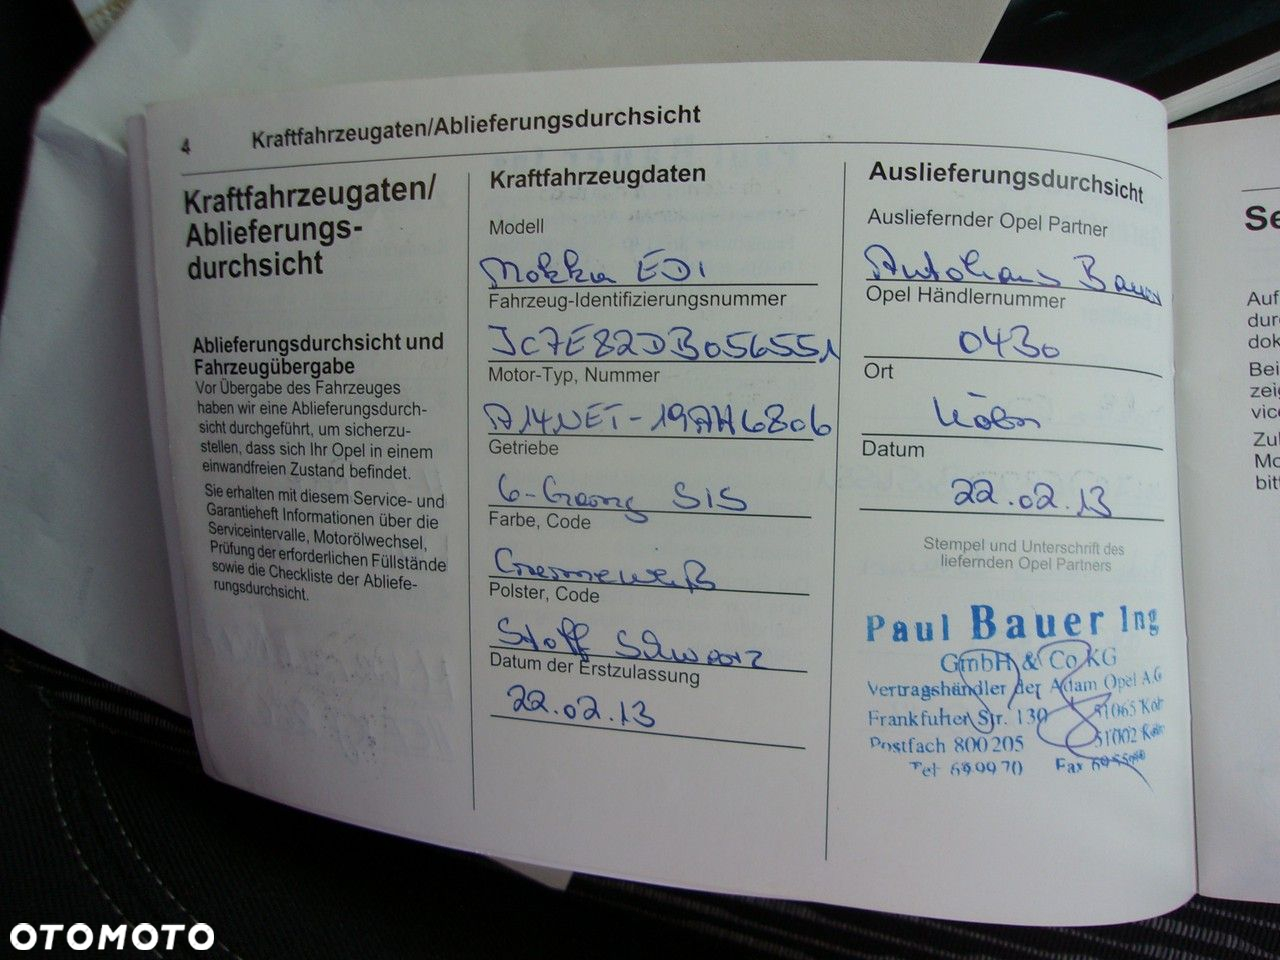 4 Kraftfahrzeugaten/Ablieferungsdurchsicht
Kraftfahrzeugaten/
Ablieferungs-
durchsicht
Ablieferungsdurchsicht und
Fahrzeugübergabe
Vor Übergabe des Fahrzeuges
haben wir eine Ablieferungsdurch-
sicht durchgeführt, um sicherzu-
stellen, dass sich Ihr Opel in einem
einwandfreien Zustand befindet.
Sie erhalten mit diesem Service- und
Garantieheft Informationen über die
Serviceintervalle, Motorölwechsel,
Prüfung der erforderlichen Füllstände
sowie die Checkliste der Abliefe-
rungsdurchsicht.
Kraftfahrzeugdaten
Modell
Mokka EDI
Fahrzeug-Identifizierungsnummer
JC7E82DB056551
Motor-Typ, Nummer
A14NET-19AH6806
Getriebe
6-Gang S/S
Farbe, Code
Polster, Code
Stoff Schwarz
Datum der Erstzulassung
22.02.13
Auslieferungsdurchsicht
Ausliefernder Opel Partner
Autohaus Bauer
Opel Händlernummer
0430
Ort
Köln
Datum
22.02.13
Stempel und Unterschrift des
liefernden Opel Partners
Paul Bauer Ing
GmbH & Co KG
Vertragshändler der Adam Opel AG
Frankfurter Str. 130 51065 Köln
Postfach 800205 51002 Köln
Tel 699970 Fax
Se
Auf
dur
dok
Bei
zeig
vic
Zul
Mo
bitt
OTOMOTO